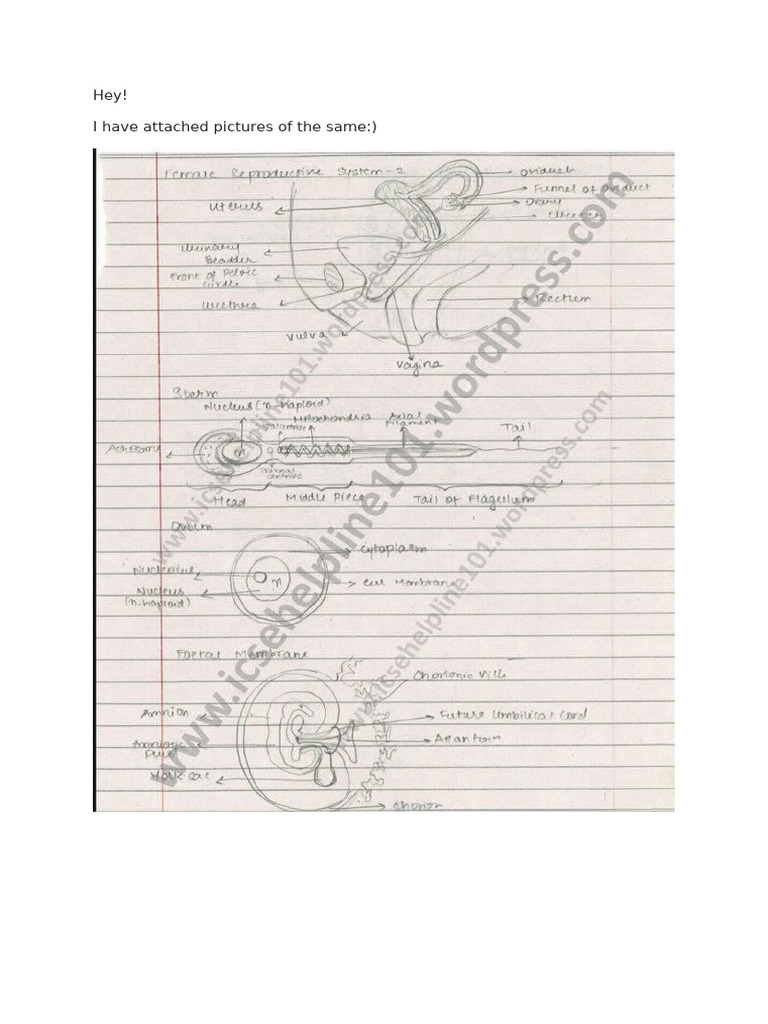 Hey!
I have attached pictures of the same:)
Female Reproductive System-2
Oviduct
Funnel of Oviduct
Uterus
Ovary
Urinary
Bladder
Front of Pelvic
Girdle
Urethra
Rectum
Vulva
Vagina
Sperm
Nucleus (n-haploid)
Mitochondria
Axial
Filament
Tail
Acrosome
n
centriole
Head
Middle Piece
Tail of Flagellum
Ovum
Cytoplasm
Nucleolus
n
Cell Membrane
Nucleus
(n-haploid)
Foetal Membrane
Chorionic Villi
Amnion
Future Umbilical Cord
Amniotic
Fluid
Allantois
Yolk sac
Chorion
www.icsehelpline101.wordpress.com
www.icsehelpline101.wordpress.com
www.icsehelpline101.wordpress.com